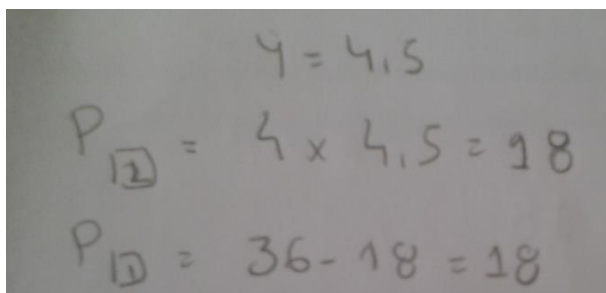 y = 4.5
P[2] = 4 x 4.5 = 18
P[1] = 36 - 18 = 18